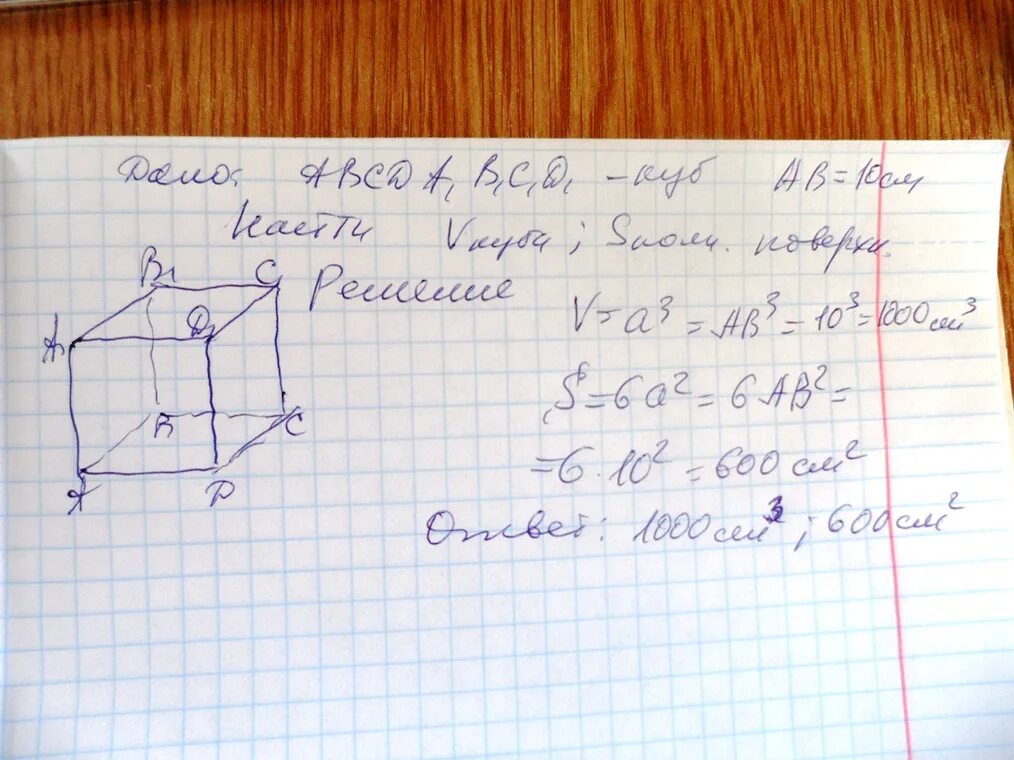 Дано: ABCD A₁ B₁C₁D₁ – куб AB = 10 см
Найти V куба ; S полн. поверхн.
Решение
V = a³ = AB³ = 10³ = 1000 см³
S = 6a² = 6 AB² =
= 6 · 10² = 600 см²
Ответ: 1000 см³ ; 600 см²
B₁ C
A₁ D₁
B C
A D